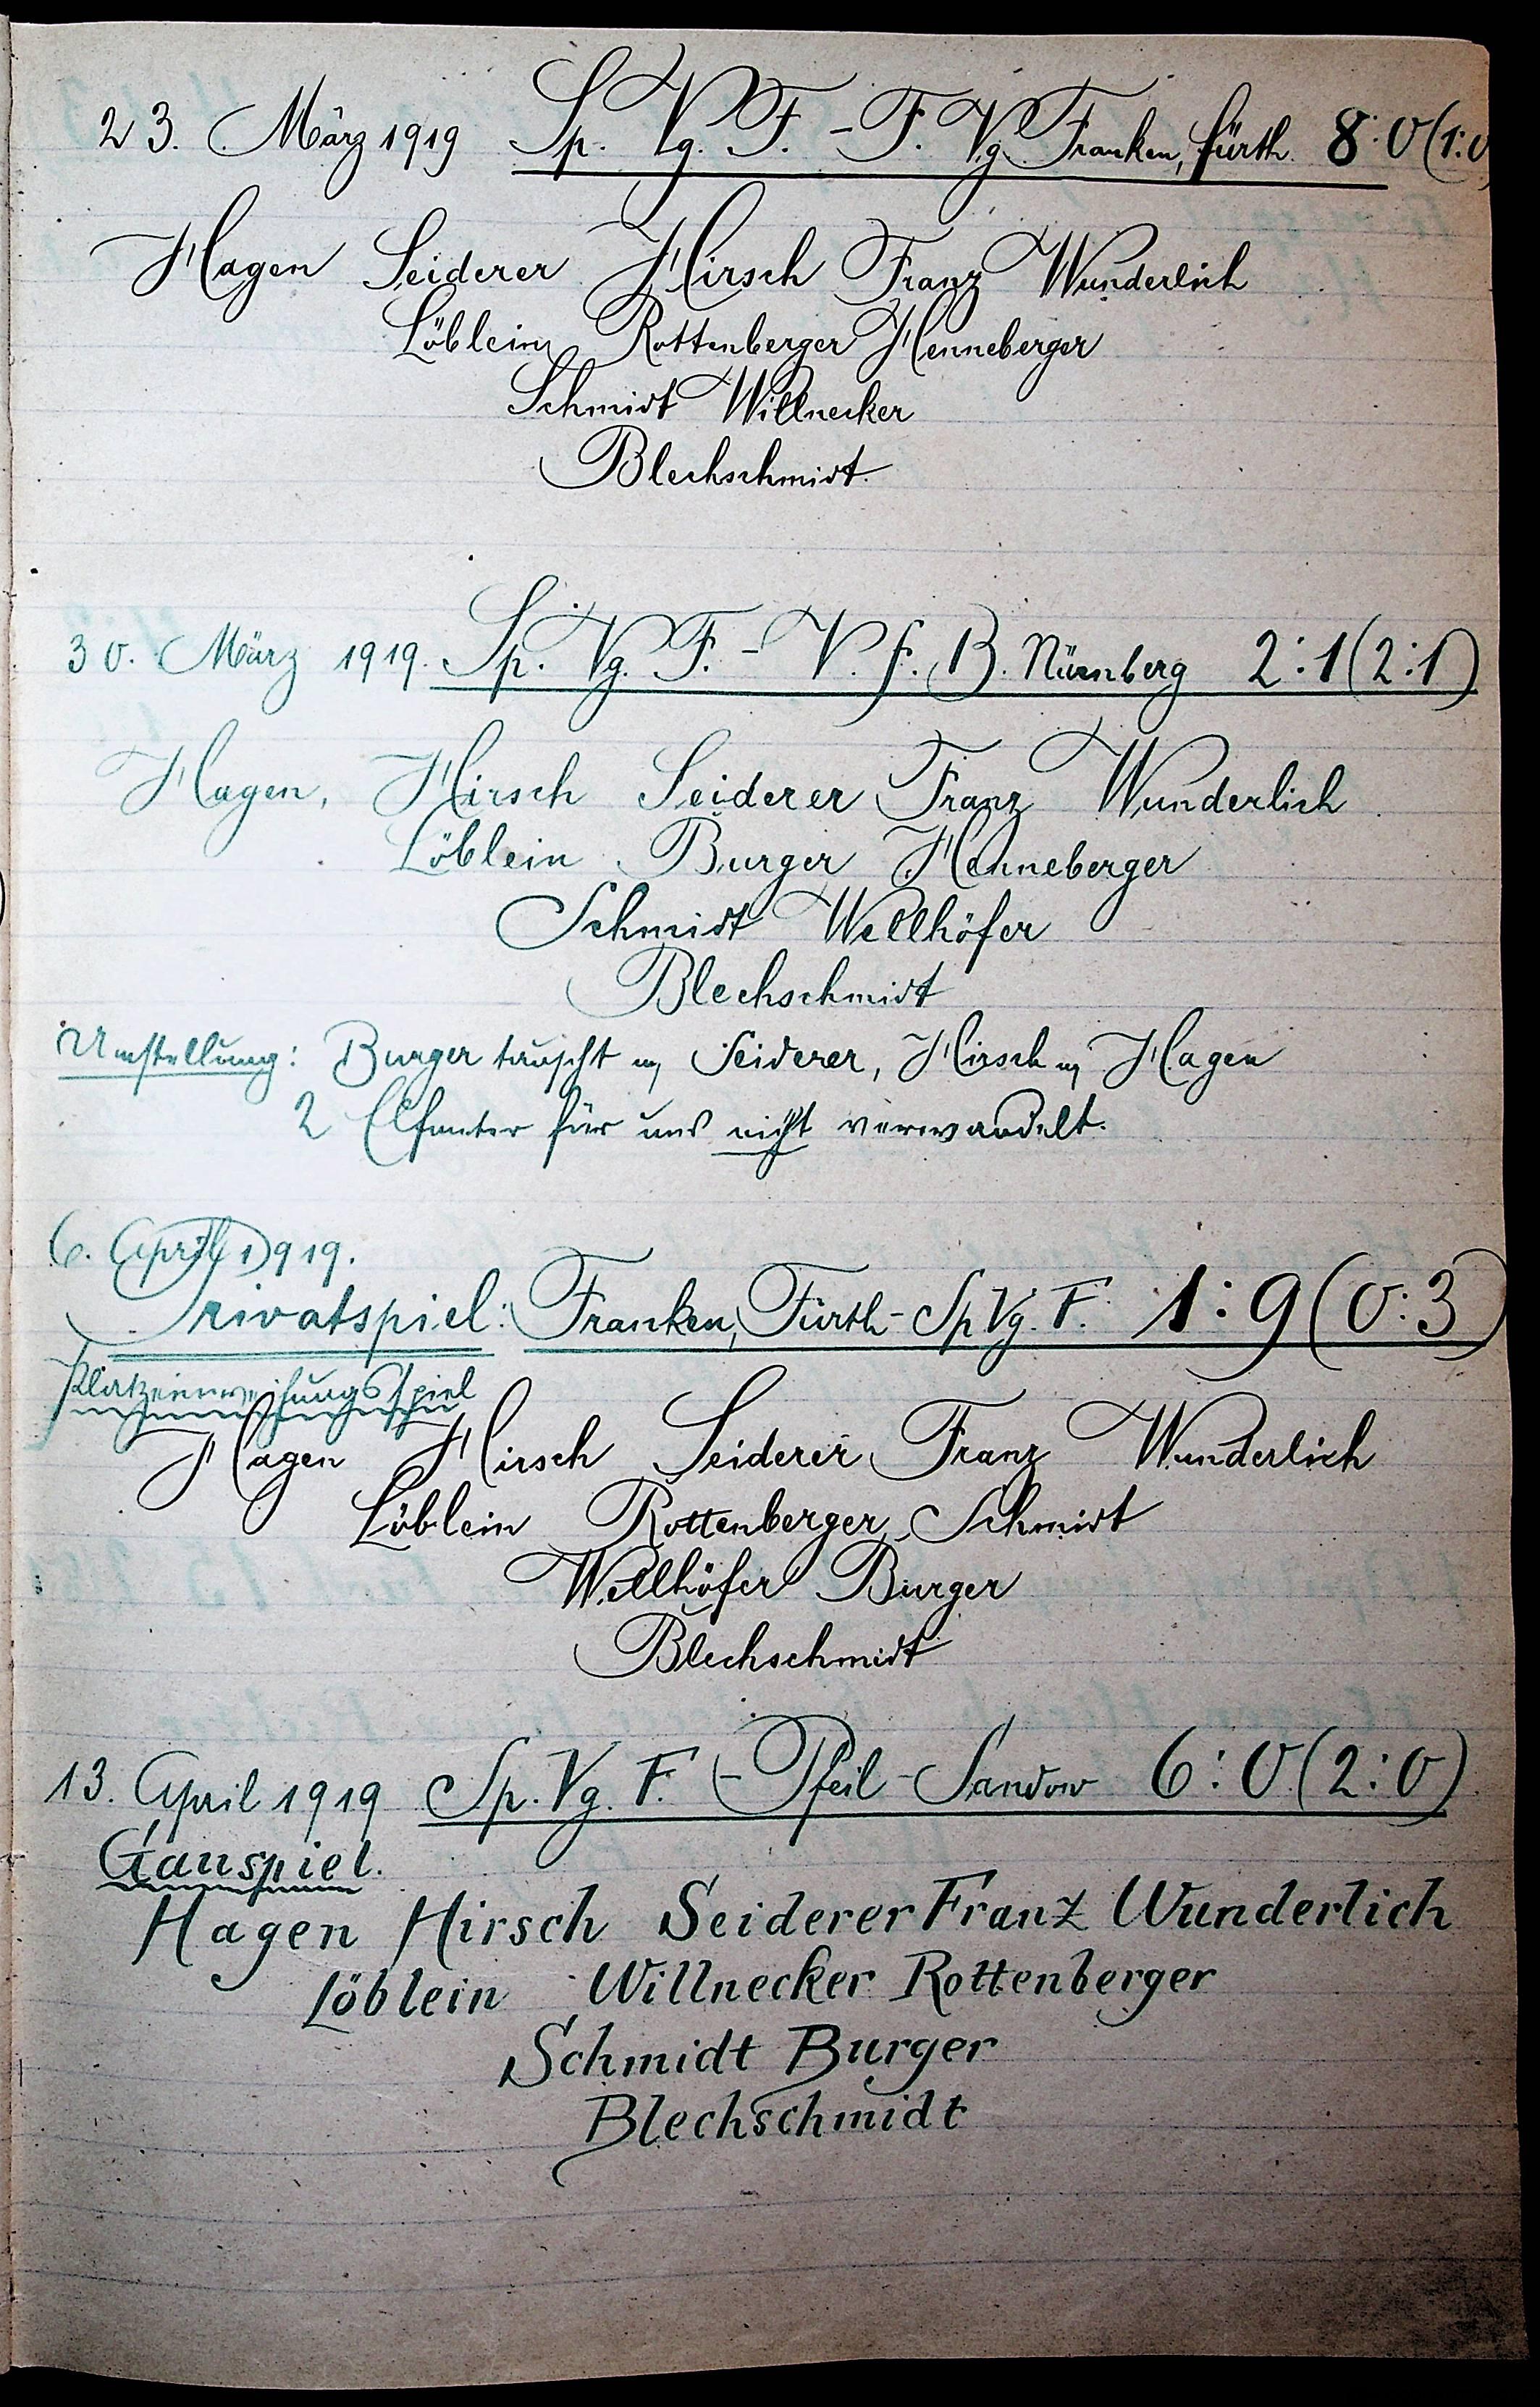 23. März 1919 Sp. Vg. F. - F. Vg. Franken, Fürth 8:0 (1:0)
Hagen Seiderer Hirsch Franz Wunderlich
Löblein Rottenberger Henneberger
Schmidt Willnecker
Blechschmidt.
30. März 1919. Sp. Vg. F. - V. f. B. Nürnberg 2:1 (2:1)
Hagen, Hirsch Seiderer Franz Wunderlich
Löblein Burger Henneberger
Schmidt Wellhöfer
Blechschmidt
Umstellung: Burger tauscht m. Seiderer, Hirsch m. Hagen
2 Elfmeter für uns nicht verwandelt.
6. April 1919.
Privatspiel: Franken, Fürth - Sp. Vg. F. 1:9 (0:3)
Platzeinweihungsspiel
Hagen Hirsch Seiderer Franz Wunderlich
Löblein Rottenberger Schmidt
Wellhöfer Burger
Blechschmidt
13. April 1919 Sp. Vg. F. - Pfeil-Sandow 6:0 (2:0)
Gauspiel.
Hagen Hirsch Seiderer Franz Wunderlich
Löblein Willnecker Rottenberger
Schmidt Burger
Blechschmidt